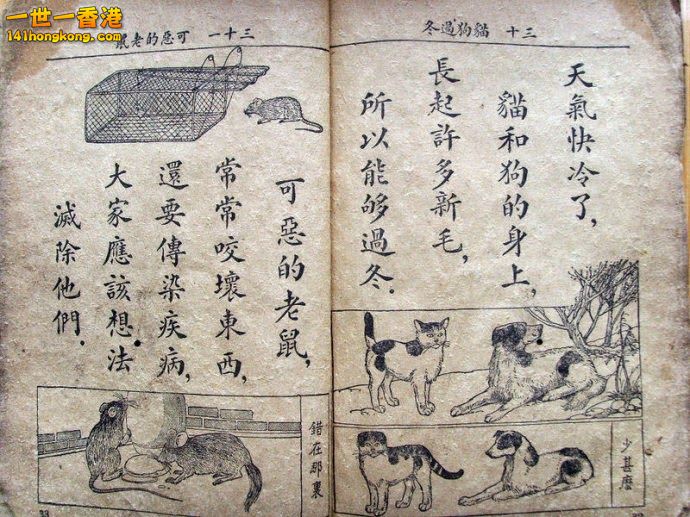 一世一香港
141hongkong.com
三十 貓狗過冬
天氣快冷了,
貓和狗的身上,
長起許多新毛,
所以能够過冬.
少甚麼
三十一 可惡的老鼠
可惡的老鼠,
常常咬壞東西,
還要傳染疾病,
大家應該想法
滅除他們.
錯在那裏